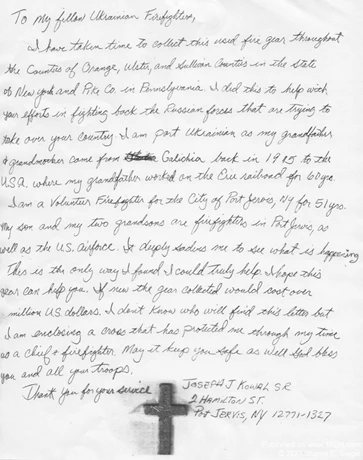 To My fellow Ukrainian Firefighters,
I have taken time to collect this used fire gear throughout
the Counties of Orange, Ulster, and Sullivan Counties in the state
of New York and Pike Co. in Pennsylvania. I did this to help with
your efforts in fighting back the Russian forces that are trying to
take over your country. I am part Ukrainian as my grandfather
& grandmother came from Galichia back in 1915 to the
U.S.A. where my grandfather worked on the Erie railroad for 60 yrs.
I am a Volunteer Firefighter for the City of Port Jervis, NY for 51 yrs.
My son and my two grandsons are firefighters in Port Jervis, as
well as the U.S. Airforce. It deeply sadens me to see what is happening
this is the only way I found I could truly help. I hope this
gear can help you. If new the gear collected would cost over
million US dollars. I don't know who will find this letter but
I am enclosing a cross that has protected me through my time
as a chief & firefighter. May it keep you safe as well God bless
you and all your troops.
Thank you for your service
JOSEPH J KOWAL SR
2 HAMILTON ST.
PORT JERVIS, NY 12771-1327